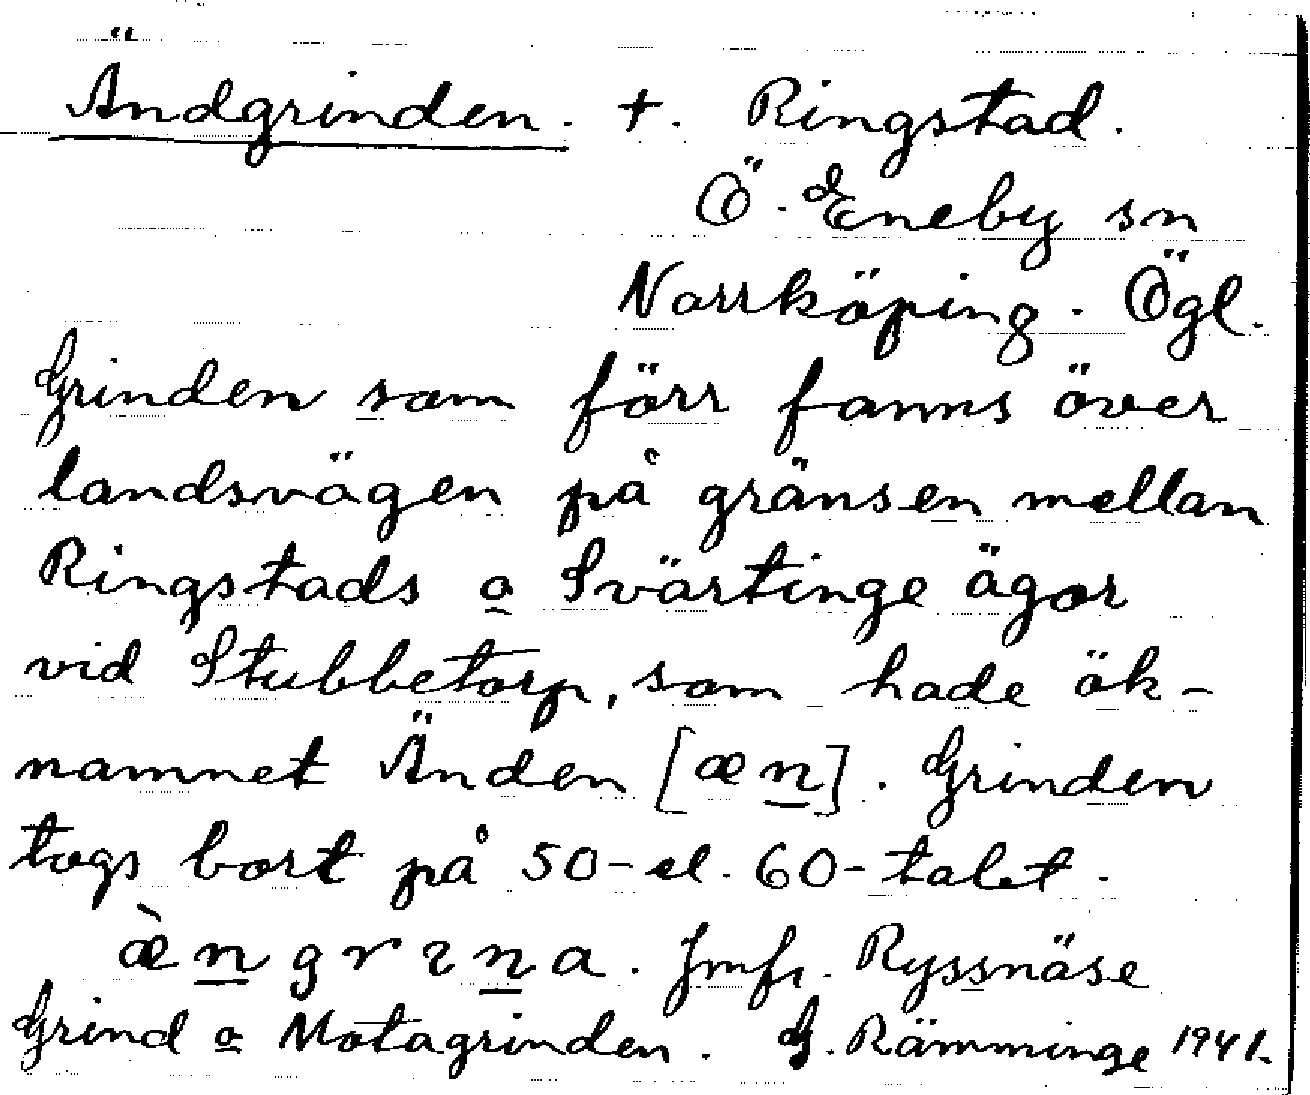 Ändgrinden. +. Ringstad.
Ö. Eneby sn
Norrköping. Ögl.
Grinden som förr fanns över
landsvägen på gränsen mellan
Ringstads o Svärtinge ägor
vid Stubbetorp, som hade ök-
namnet Änden [æn]. Grinden
togs bort på 50-el. 60-talet.
æ̀ngrɩna. Jmfr. Ryssnäse
Grind o Motagrinden. G. Rämminge 1941.